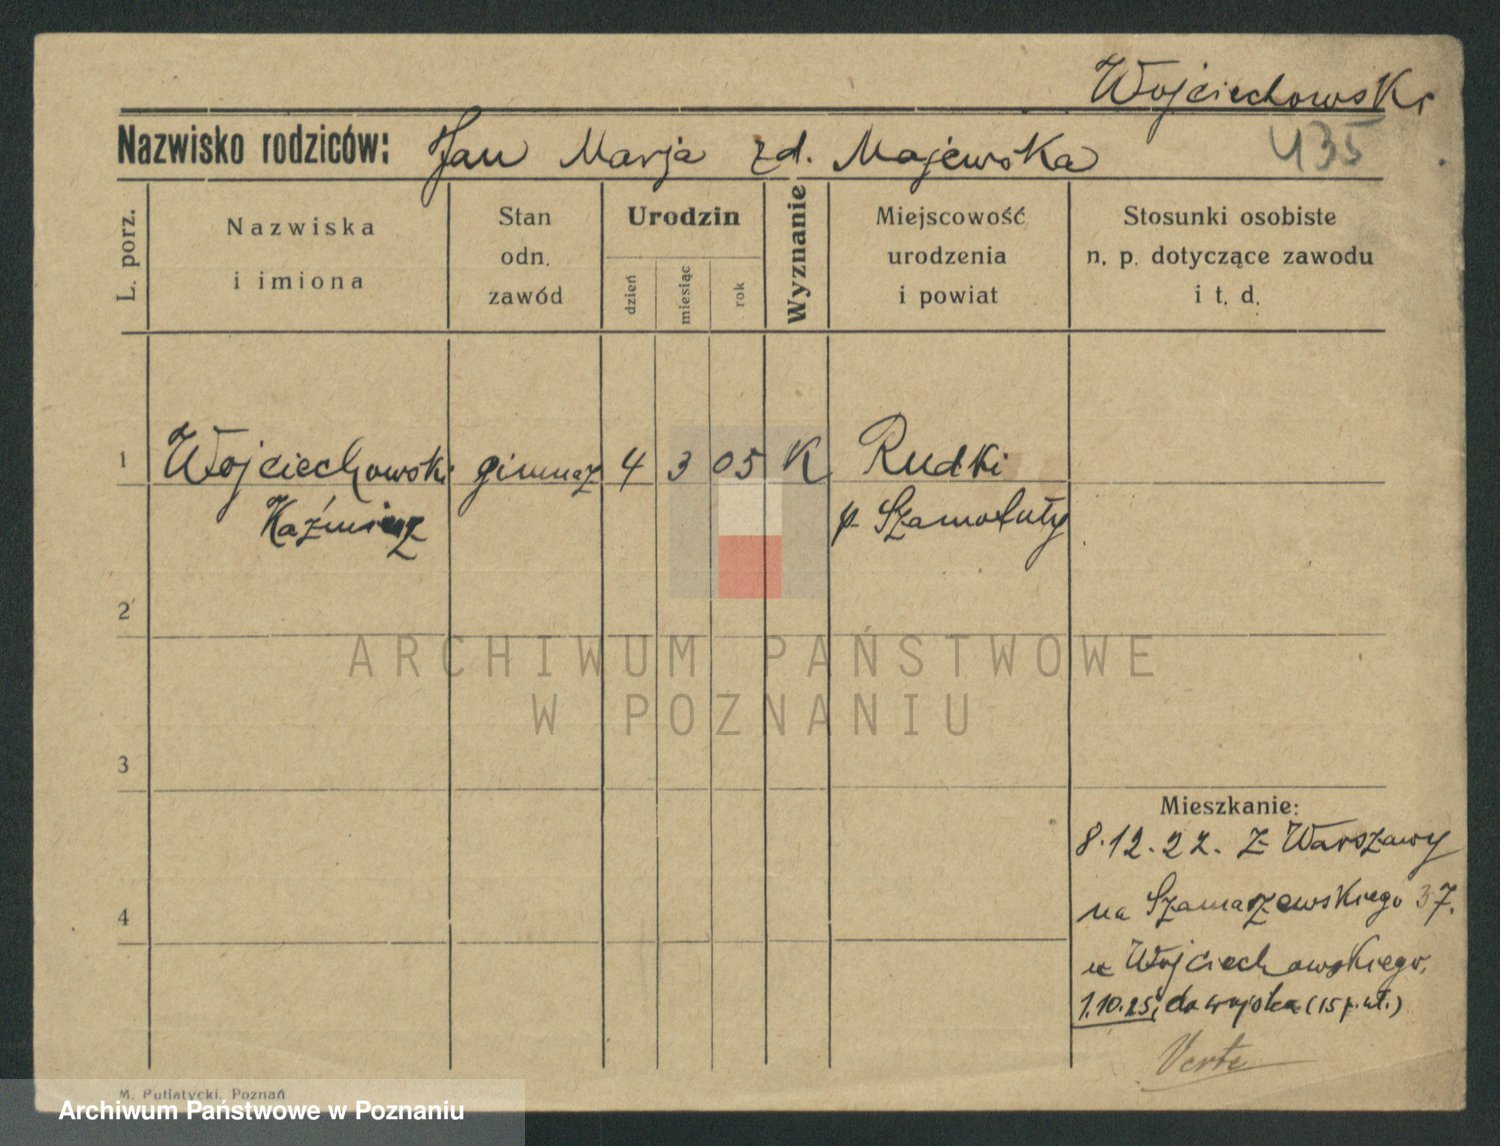 Wojciechowski
435
Nazwisko rodziców: Jan Marja zd. Majewska
L. porz.
Nazwiska
i imiona
Stan
odn.
zawód
Urodzin
dzień
miesiąc
rok
Wyznanie
Miejscowość
urodzenia
i powiat
Stosunki osobiste
n. p. dotyczące zawodu
i t. d.
1 Wojciechowski gimnaz 4 3 05 K Rudki
Kaźmierz p. Szamotuły
2
3
4
Mieszkanie:
8.12.22. z Warszawy
na Szamarzewskiego 37.
u Wojciechowskiego,
1.10.25, do wojska (15 p. uł.)
Verte
M. Putiatycki, Poznań
ARCHIWUM PAŃSTWOWE
W POZNANIU
Archiwum Państwowe w Poznaniu